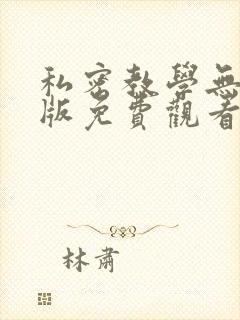 私密教學無
版免費觀看
林肅